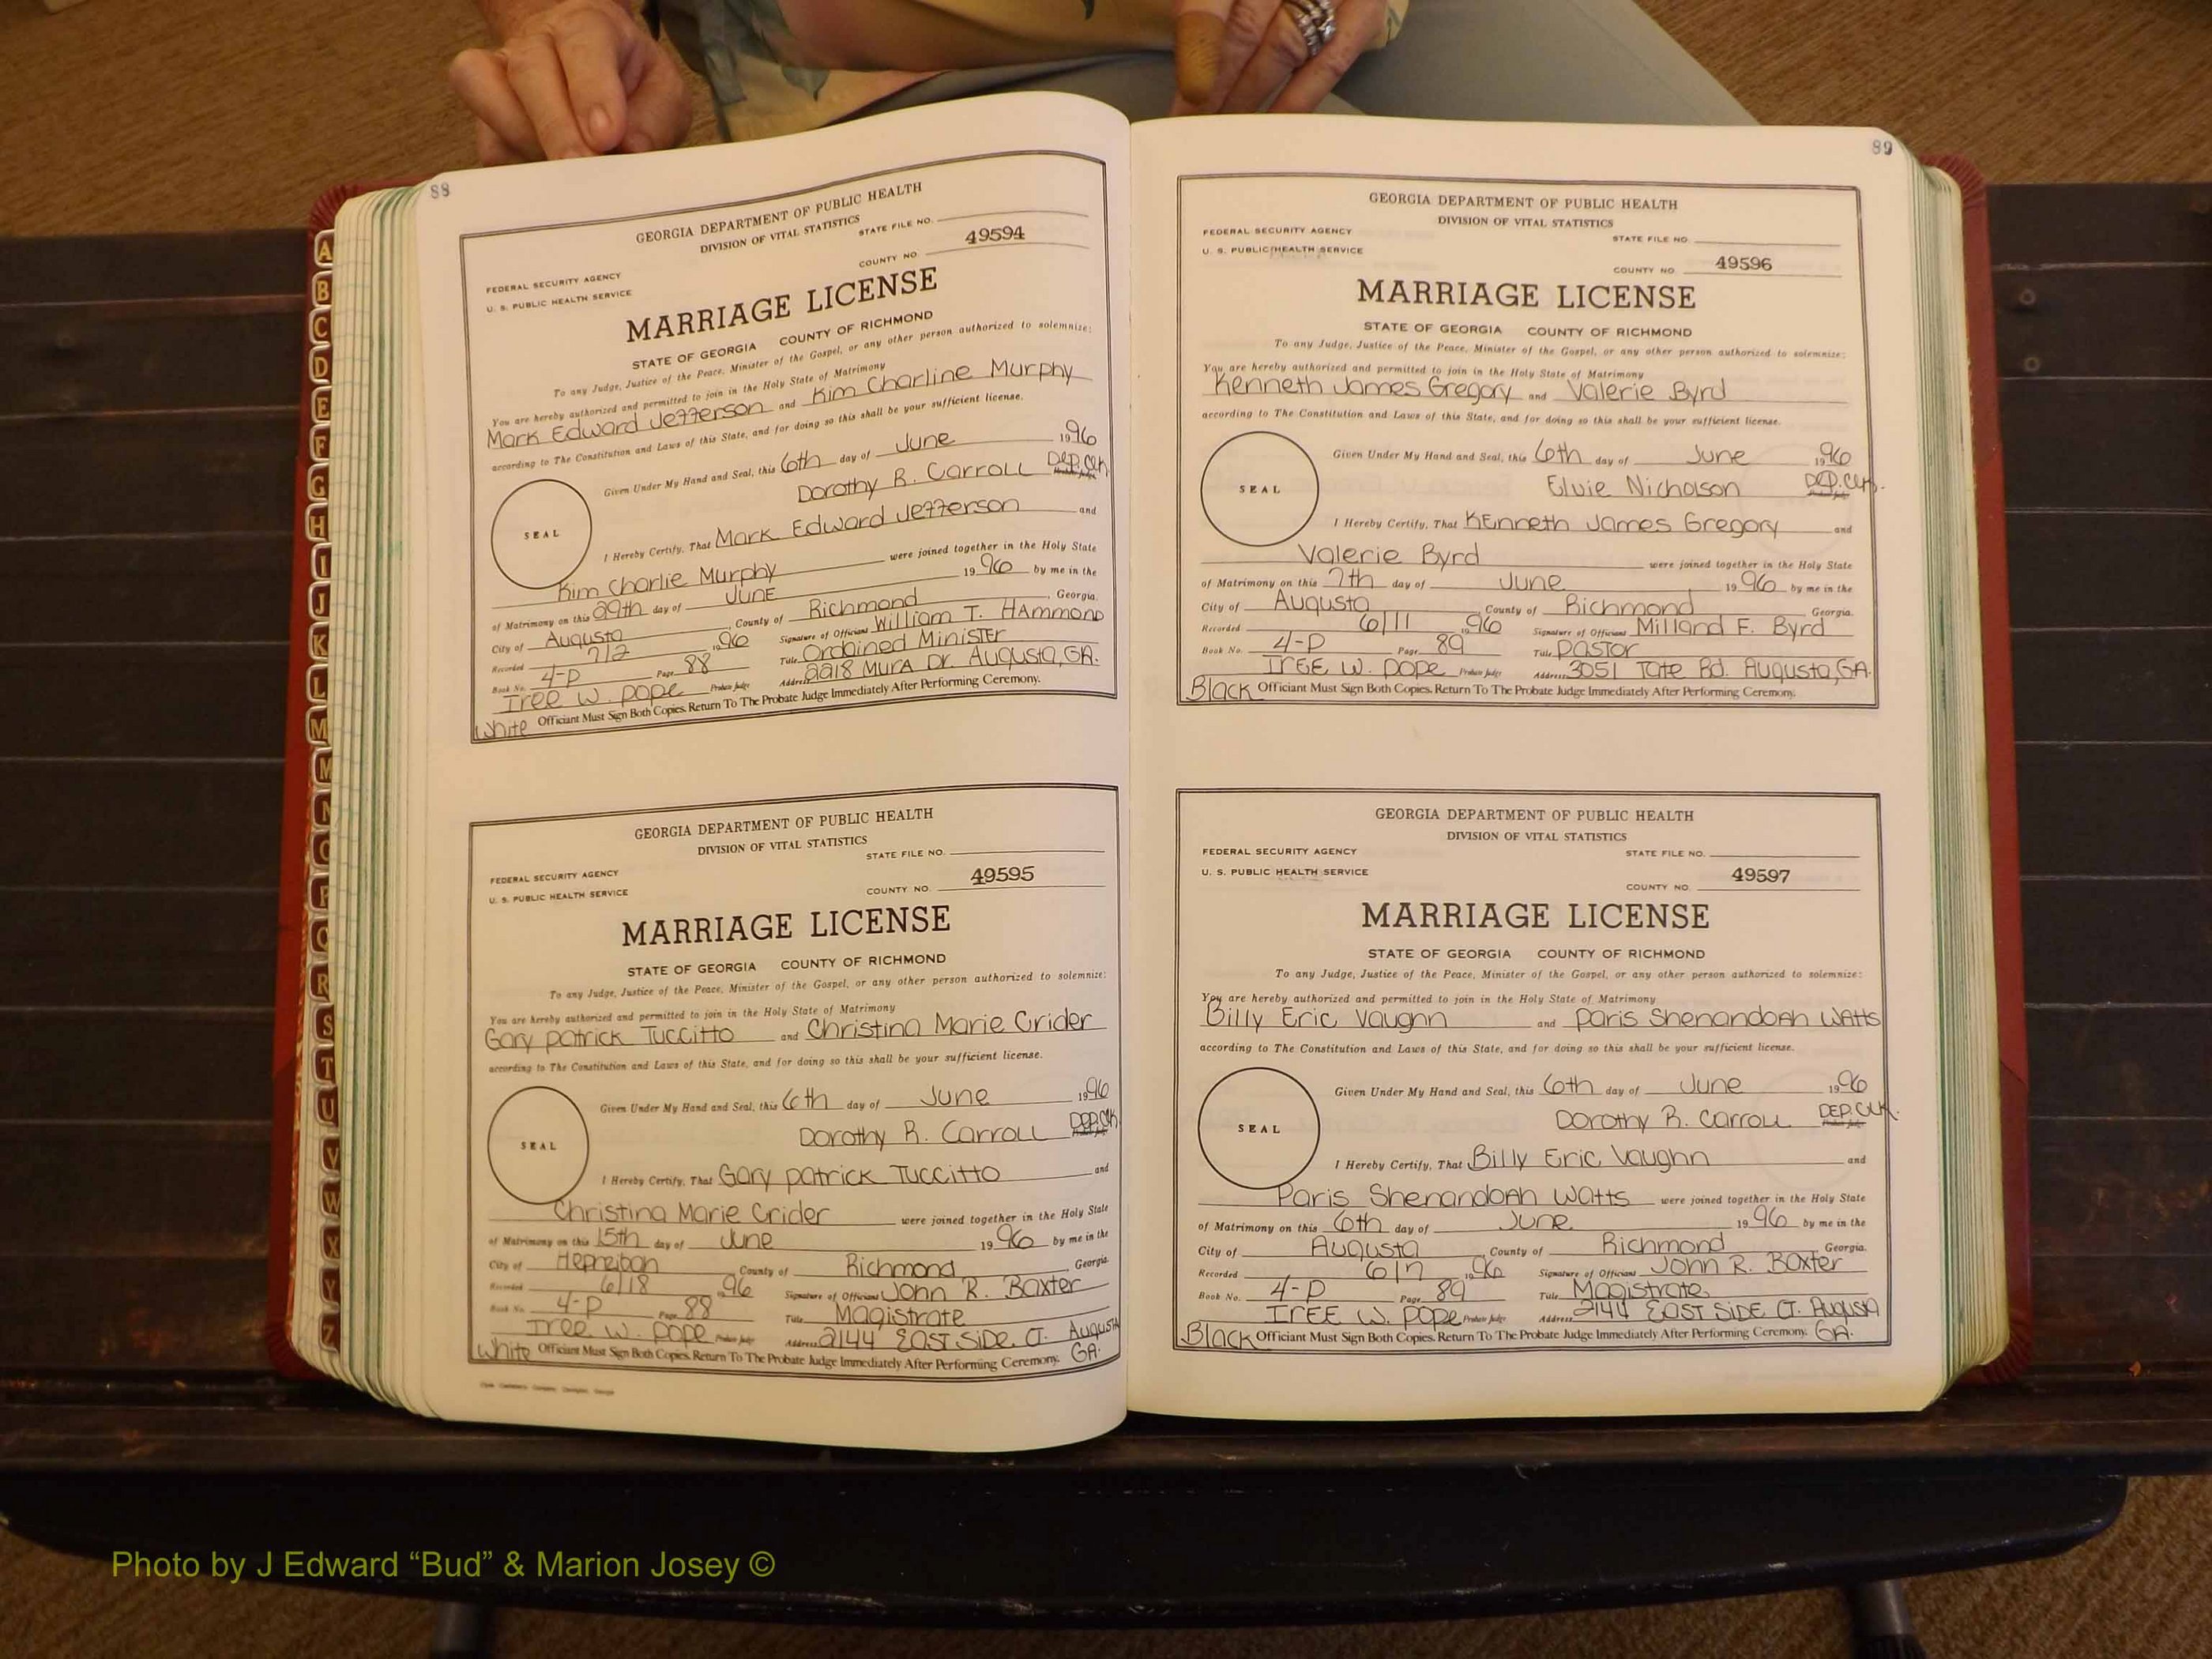 88
GEORGIA DEPARTMENT OF PUBLIC HEALTH
DIVISION OF VITAL STATISTICS
STATE FILE NO.
FEDERAL SECURITY AGENCY
U. S. PUBLIC HEALTH SERVICE
COUNTY NO. 49594
MARRIAGE LICENSE
STATE OF GEORGIA COUNTY OF RICHMOND
To any Judge, Justice of the Peace, Minister of the Gospel, or any other person authorized to solemnize:
You are hereby authorized and permitted to join in the Holy State of Matrimony
Mark Edward Jefferson and Kim Charline Murphy
according to The Constitution and Laws of this State, and for doing so this shall be your sufficient license.
Given Under My Hand and Seal, this 6th day of June 1996
Dorothy R. Carroll Dep. Clk
SEAL
I Hereby Certify, That Mark Edward Jefferson and
Kim Charlie Murphy were joined together in the Holy State
of Matrimony on this 29th day of JUNE 1996 by me in the
City of Augusta, County of Richmond, Georgia.
Recorded 7/2 1996 Signature of Officiant William T. Hammond
Book No. 4-P Page 88 Title Ordained Minister
Iree W. Pope Probate Judge Address 2218 Mura Dr. Augusta, GA.
White Officiant Must Sign Both Copies. Return To The Probate Judge Immediately After Performing Ceremony.
GEORGIA DEPARTMENT OF PUBLIC HEALTH
DIVISION OF VITAL STATISTICS
STATE FILE NO.
FEDERAL SECURITY AGENCY
U. S. PUBLIC HEALTH SERVICE
COUNTY NO. 49595
MARRIAGE LICENSE
STATE OF GEORGIA COUNTY OF RICHMOND
To any Judge, Justice of the Peace, Minister of the Gospel, or any other person authorized to solemnize:
You are hereby authorized and permitted to join in the Holy State of Matrimony
Gary Patrick Tuccitto and Christina Marie Crider
according to The Constitution and Laws of this State, and for doing so this shall be your sufficient license.
Given Under My Hand and Seal, this 6th day of June 1996
Dorothy R. Carroll Dep. Clk
SEAL
I Hereby Certify, That Gary Patrick Tuccitto and
Christina Marie Crider were joined together in the Holy State
of Matrimony on this 15th day of June 1996 by me in the
City of Hepzibah, County of Richmond, Georgia
Recorded 6/18 1996 Signature of Officiant John R. Baxter
Book No. 4-P Page 88 Title Magistrate
Iree W. Pope Probate Judge Address 2144 East Side Ct. Augusta
White Officiant Must Sign Both Copies. Return To The Probate Judge Immediately After Performing Ceremony. GA.
89
GEORGIA DEPARTMENT OF PUBLIC HEALTH
DIVISION OF VITAL STATISTICS
FEDERAL SECURITY AGENCY
STATE FILE NO.
U. S. PUBLIC HEALTH SERVICE
COUNTY NO. 49596
MARRIAGE LICENSE
STATE OF GEORGIA COUNTY OF RICHMOND
To any Judge, Justice of the Peace, Minister of the Gospel, or any other person authorized to solemnize:
You are hereby authorized and permitted to join in the Holy State of Matrimony
Kenneth James Gregory and Valerie Byrd
according to The Constitution and Laws of this State, and for doing so this shall be your sufficient license.
Given Under My Hand and Seal, this 6th day of June 1996
Elvie Nicholson Dep. Clk.
SEAL
I Hereby Certify, That Kenneth James Gregory and
Valerie Byrd were joined together in the Holy State
of Matrimony on this 7th day of June 1996 by me in the
City of Augusta, County of Richmond Georgia.
Recorded 6/11 1996 Signature of Officiant Millard F. Byrd
Book No. 4-P Page 89 Title Pastor
Iree W. Pope Probate Judge Address 3051 Tate Rd. Augusta, GA.
Black Officiant Must Sign Both Copies. Return To The Probate Judge Immediately After Performing Ceremony.
GEORGIA DEPARTMENT OF PUBLIC HEALTH
DIVISION OF VITAL STATISTICS
FEDERAL SECURITY AGENCY
STATE FILE NO.
U. S. PUBLIC HEALTH SERVICE
COUNTY NO. 49597
MARRIAGE LICENSE
STATE OF GEORGIA COUNTY OF RICHMOND
To any Judge, Justice of the Peace, Minister of the Gospel, or any other person authorized to solemnize:
You are hereby authorized and permitted to join in the Holy State of Matrimony
Billy Eric Vaughn and Paris Shenandoah Watts
according to The Constitution and Laws of this State, and for doing so this shall be your sufficient license.
Given Under My Hand and Seal, this 6th day of June 1996
Dorothy R. Carroll Dep. Clk.
SEAL
I Hereby Certify, That Billy Eric Vaughn and
Paris Shenandoah Watts were joined together in the Holy State
of Matrimony on this 6th day of June 1996 by me in the
City of Augusta, County of Richmond Georgia.
Recorded 6/7 1996 Signature of Officiant John R. Baxter
Book No. 4-P Page 89 Title Magistrate
Iree W. Pope Probate Judge Address 2144 East Side Ct. Augusta
Black Officiant Must Sign Both Copies. Return To The Probate Judge Immediately After Performing Ceremony. GA.
A
B
C
D
E
F
G
H
I
J
K
L
M
M
N
O
P
Q
R
S
T
U
V
W
X
Y
Z
Photo by J Edward “Bud” & Marion Josey ©